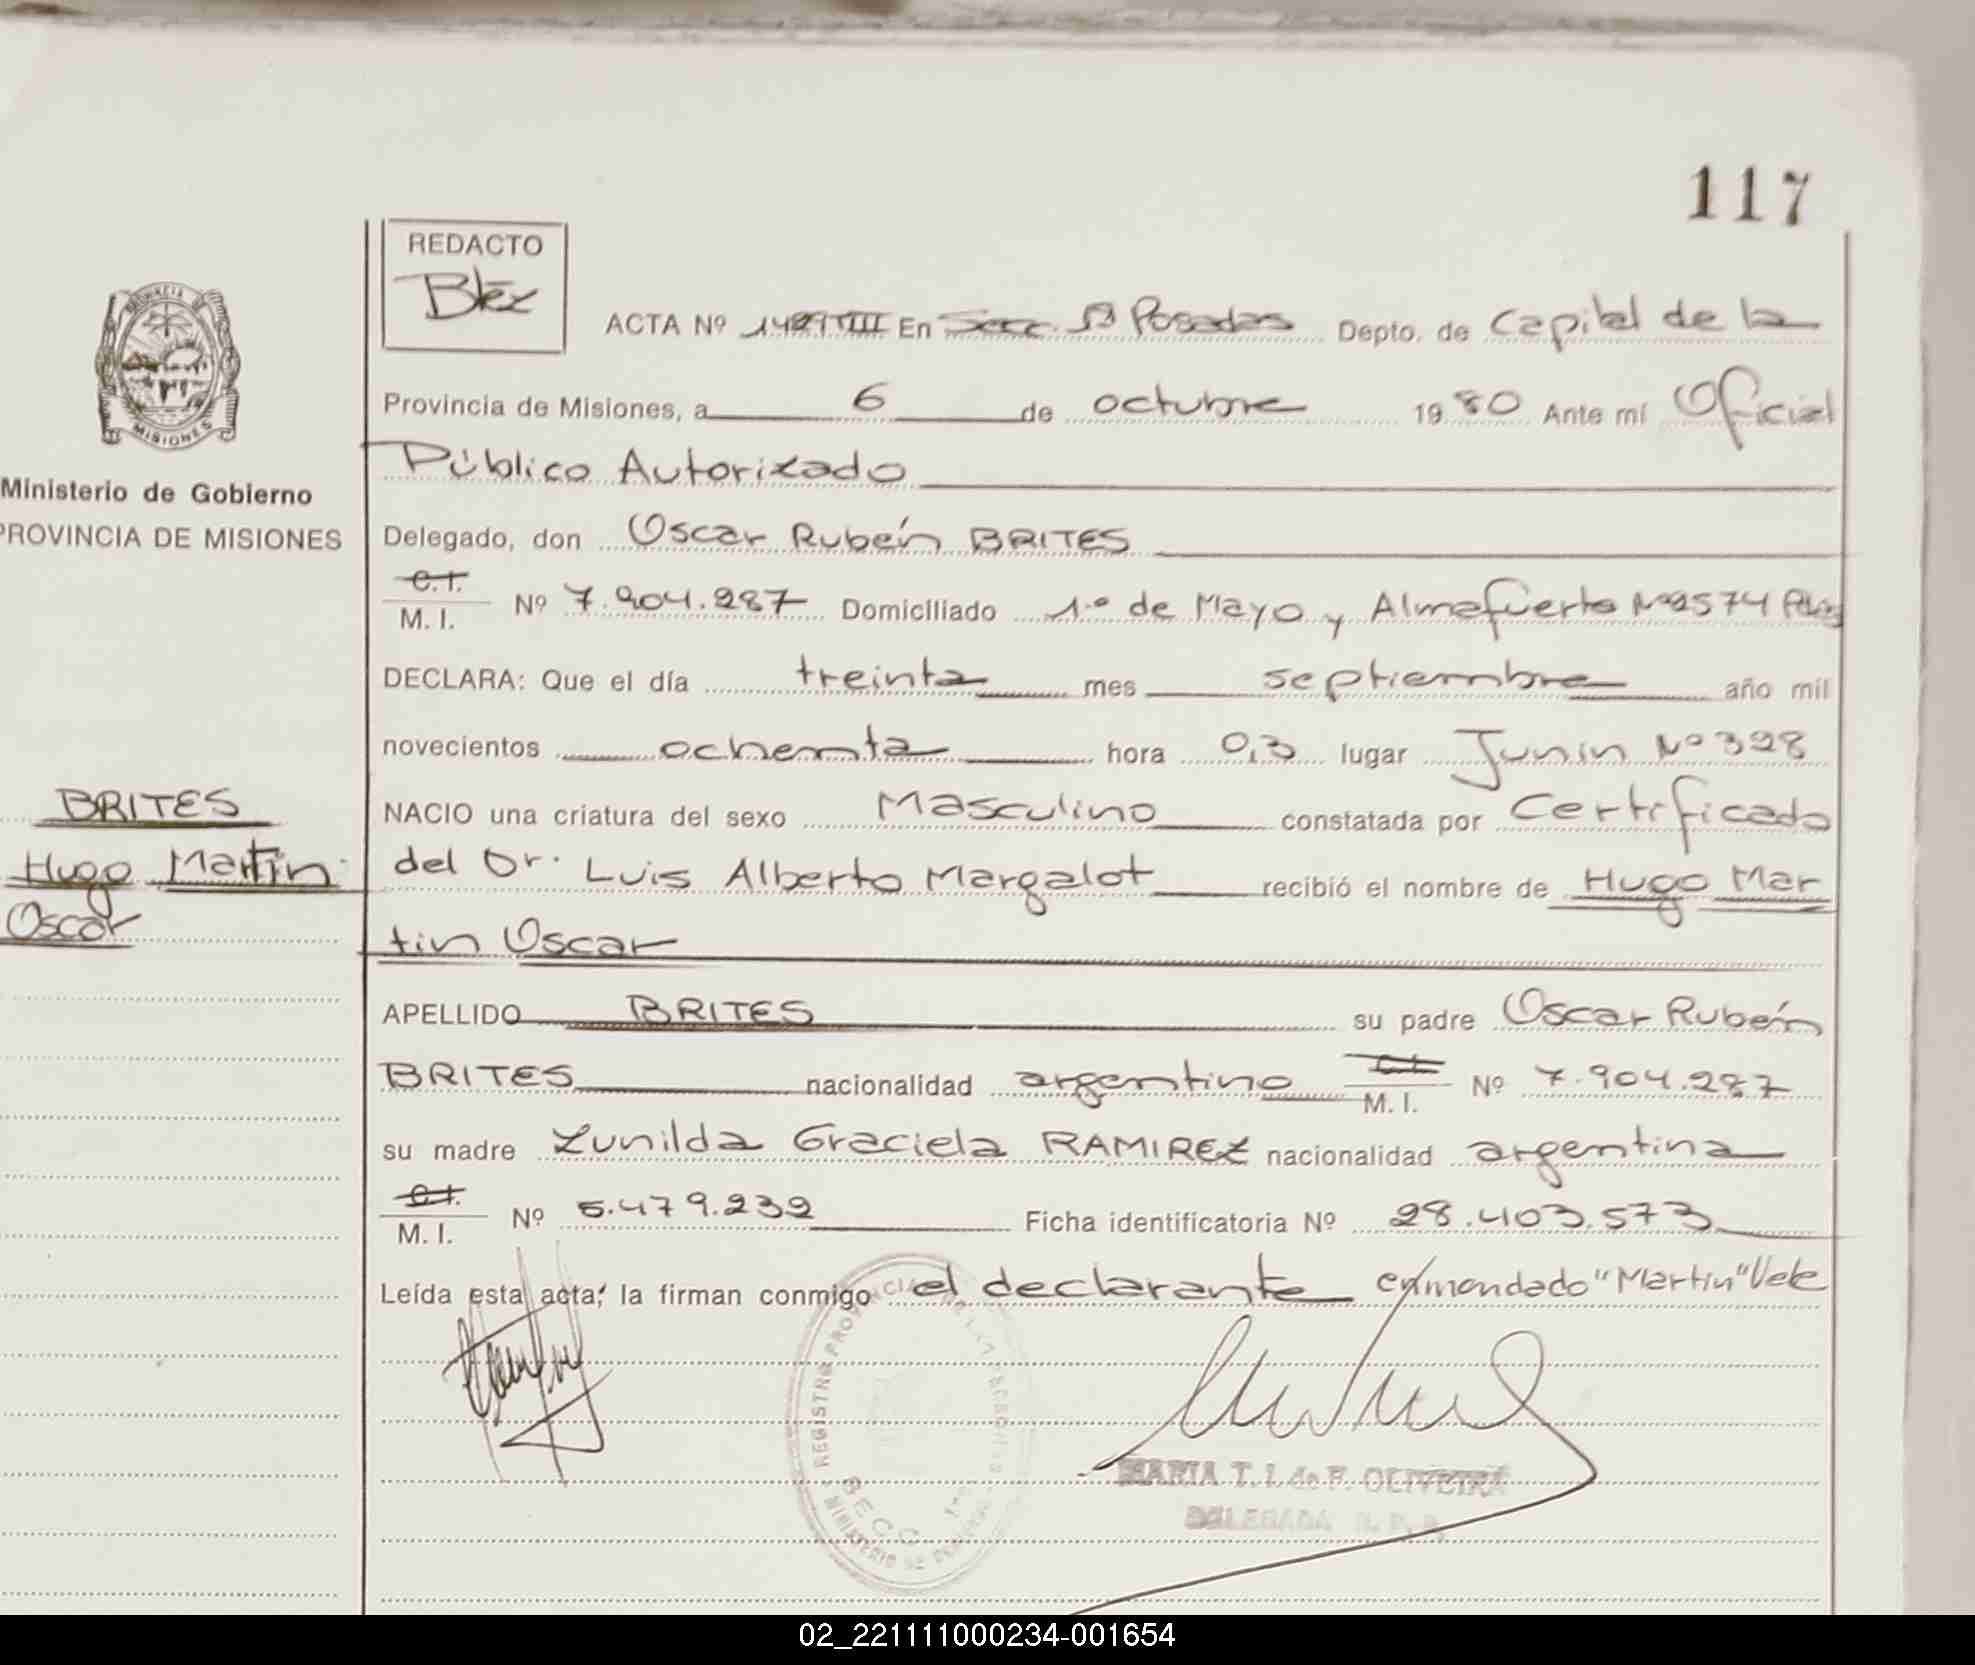 117
REDACTO
ACTA Nº En Secc. 1ª Posadas Depto. de Capital de la
Provincia de Misiones, a 6 de octubre 1980 Ante mí Oficial
Público Autorizado
Ministerio de Gobierno
PROVINCIA DE MISIONES
Delegado, don Oscar Rubén BRITES
C.I.
M. I. Nº 7.904.287 Domiciliado 1.º de Mayo y Almafuerte Nº 2574
DECLARA: Que el día treinta mes septiembre año mil
novecientos ochenta hora 0,3 lugar Junin Nº 328
BRITES
NACIO una criatura del sexo Masculino constatada por Certificado
Hugo Martin
del Dr. Luis Alberto Margalot recibió el nombre de Hugo Mar
Oscar
tin Oscar
APELLIDO BRITES su padre Oscar Rubén
BRITES nacionalidad argentino C.I. M. I. Nº 7.904.287
su madre Zunilda Graciela RAMIREZ nacionalidad argentina
C.I.
M. I. Nº 5.479.232 Ficha identificatoria Nº 28.403.573
Leída esta acta, la firman conmigo el declarante enmendado "Martin" Vale
MARIA T. I. de F. OLIVEIRA
DELEGADA R. P. P.
02_221111000234-001654